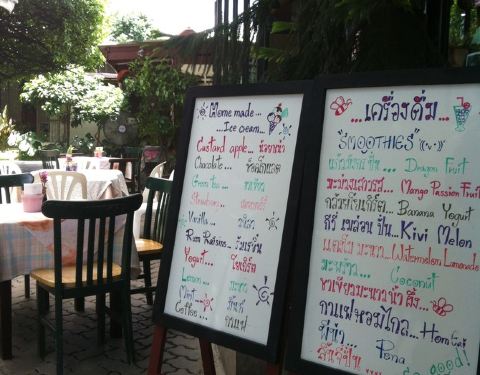 Home made...
...Ice cream...
Custard apple...
Chocolate... ช็อคโกแลต
Green tea... ชาเขียว
Strawberry...
Vanilla... วนิลา
Rum Raisins...
Yogurt... โยเกิร์ต
Lemon... มะนาว
Mint... มิ้นท์
Coffee... กาแฟ
...เครื่องดื่ม...
"SMOOTHIES"
แก้วมังกร ปั่น... Dragon Fruit
มะม่วงเสาวรส... Mango Passion Fruit
กล้วยโยเกิร์ต... Banana Yogurt
กีวี เมล่อน ปั่น... Kivi Melon
แตงโม มะนาว... Watermelon Lemonade
มะพร้าว... Coconut
ชาเขียวมะนาวน้ำผึ้ง...
กาแฟหอมไกล...
Pena
so good!